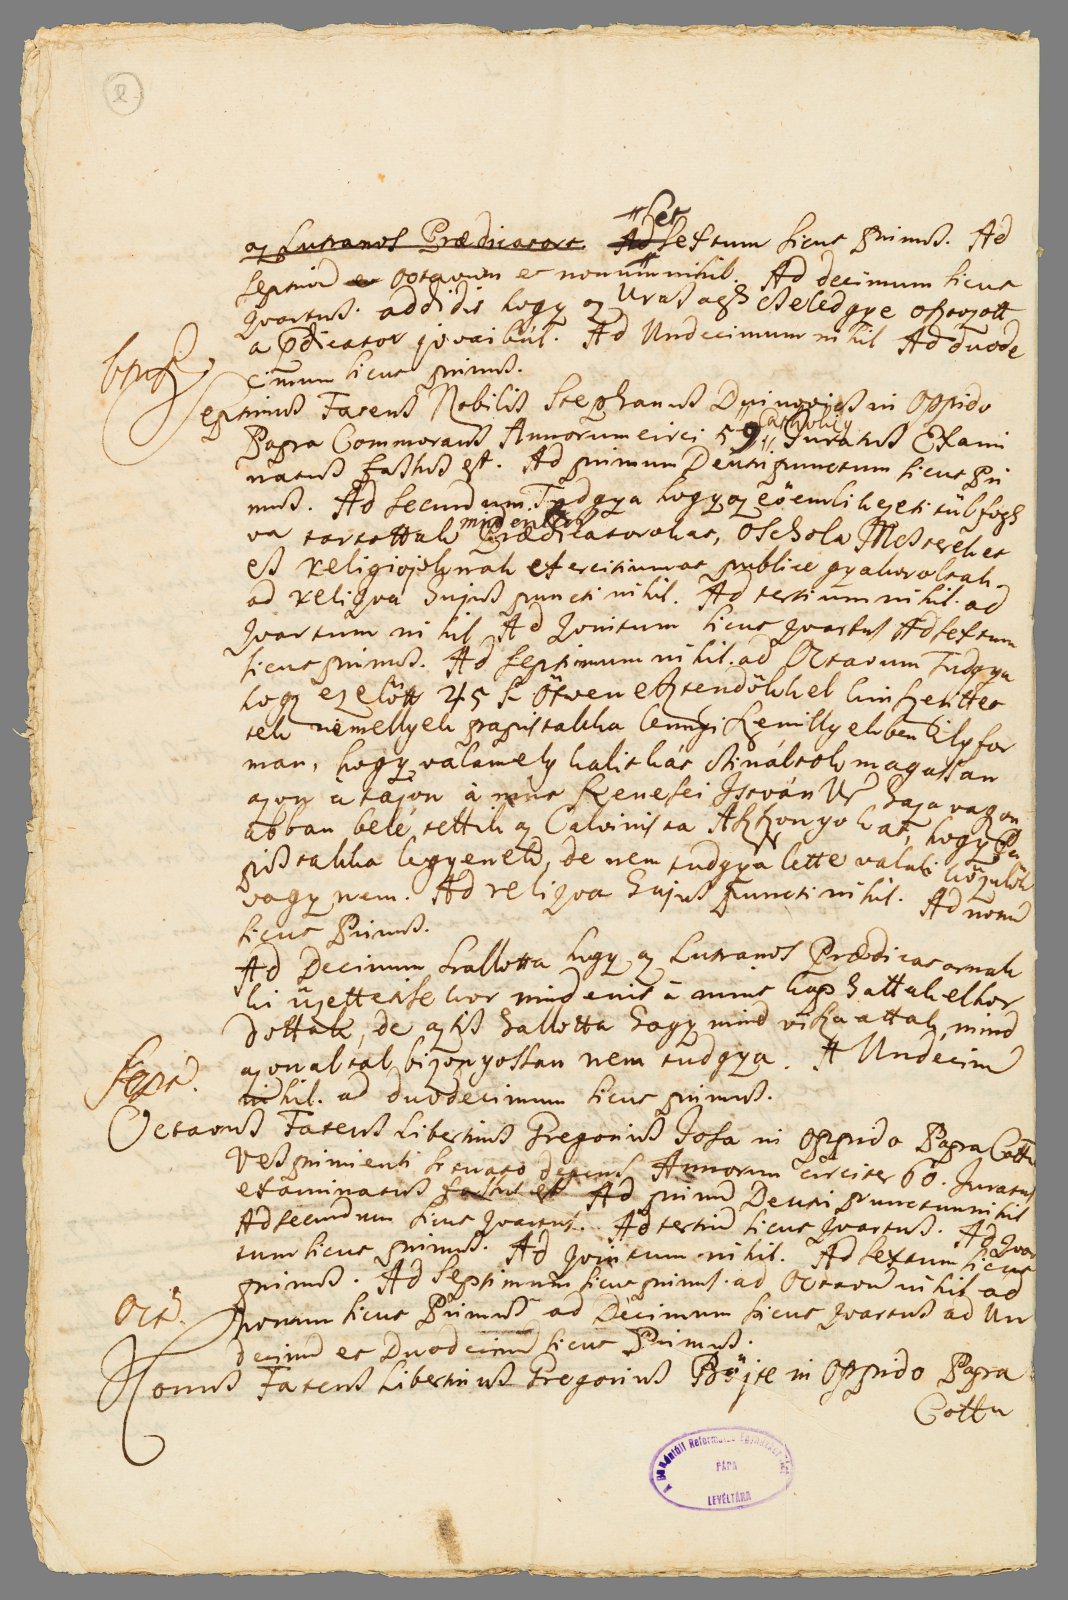 2
az Lutranos Prædicatort. Ad Sextum sicut primus. Ad
septimū et octavum et nonum nihil. Ad decimum sicut
quartus. addidit hogy az Uraságh cselédgye osztozott
a pdicator jovaibúl. Ad Undecimum nihil Ad duode
cimum sicut primus.
Septimus Fatens Nobilis Stephanus in Oppido
Papa Commorans Annorum circi. 59 Catholicus Juratus Exami
natus fassus est. Ad primum Deutri punctum sicut Pri
mus. Ad secundum Tudgya hogy az eő emlikezeti túl fogh
va tartottak mindenkor Prædicatorokat, Oschola Mestereket
es religiojoknak exercitiumat publice gyakoroltak.
ad reliqua hujus puncti nihil. Ad tertium nihil. ad
quartum nihil Ad quintum sicut quartus Ad sextum
sicut primus. Ad septimum nihil. ad Octavum Tudgya
hogy ez előtt 45 s ötven esztendőkkel kinszerittet
tek némellyek papistakka lenni kemillyekben ily for
man, hogy valamely kalickát csináltak magossan
azon a tájon à mint Kenesei István Ur haza vagyon
abban belé tettik az Calvinista Aszszonyokat, hogy Pa
pistakka legyenek, de nem tudgya lette valaki közülök
vagy nem. Ad reliqua hujus puncti nihil. Ad nonū
sicut Primus.
Ad Decimum hallotta hogy az Lutranos Prædicatornak
ki üzettetésekor mindenit à mint kaphattak elhor
dottak, de azt is hallotta hogy mind viszszaattak mind
azonáltal bizonyossan nem tudgya. A Undecimū
nihil. ad duodecimum sicut primus.
Sept.
Octavus Fatens Libertinus Gregorius Josa in oppido Papa Cottu
Vesprimiensi situato degens Annorum circiter 60. Juratus
examinatus fassus est Ad primū Deutri punctum nihil
Ad secundum sicut quartus. Ad tertiū sicut quartus. Ad quar
tum sicut primus. Ad quintum nihil. Ad sextum sicut
primus. Ad septimum sicut primus. ad Octavū nihil ad
nonum sicut Primus ad Decimum sicut quartus ad Un
decimū et Duodecimū sicut Primus.
Oct.
Nonus Fatens Libertinus Gregorius Böjte in Oppido Papa
Cottu
A Dunántúli Református Egyházkerület
PÁPA
LEVÉLTÁRA